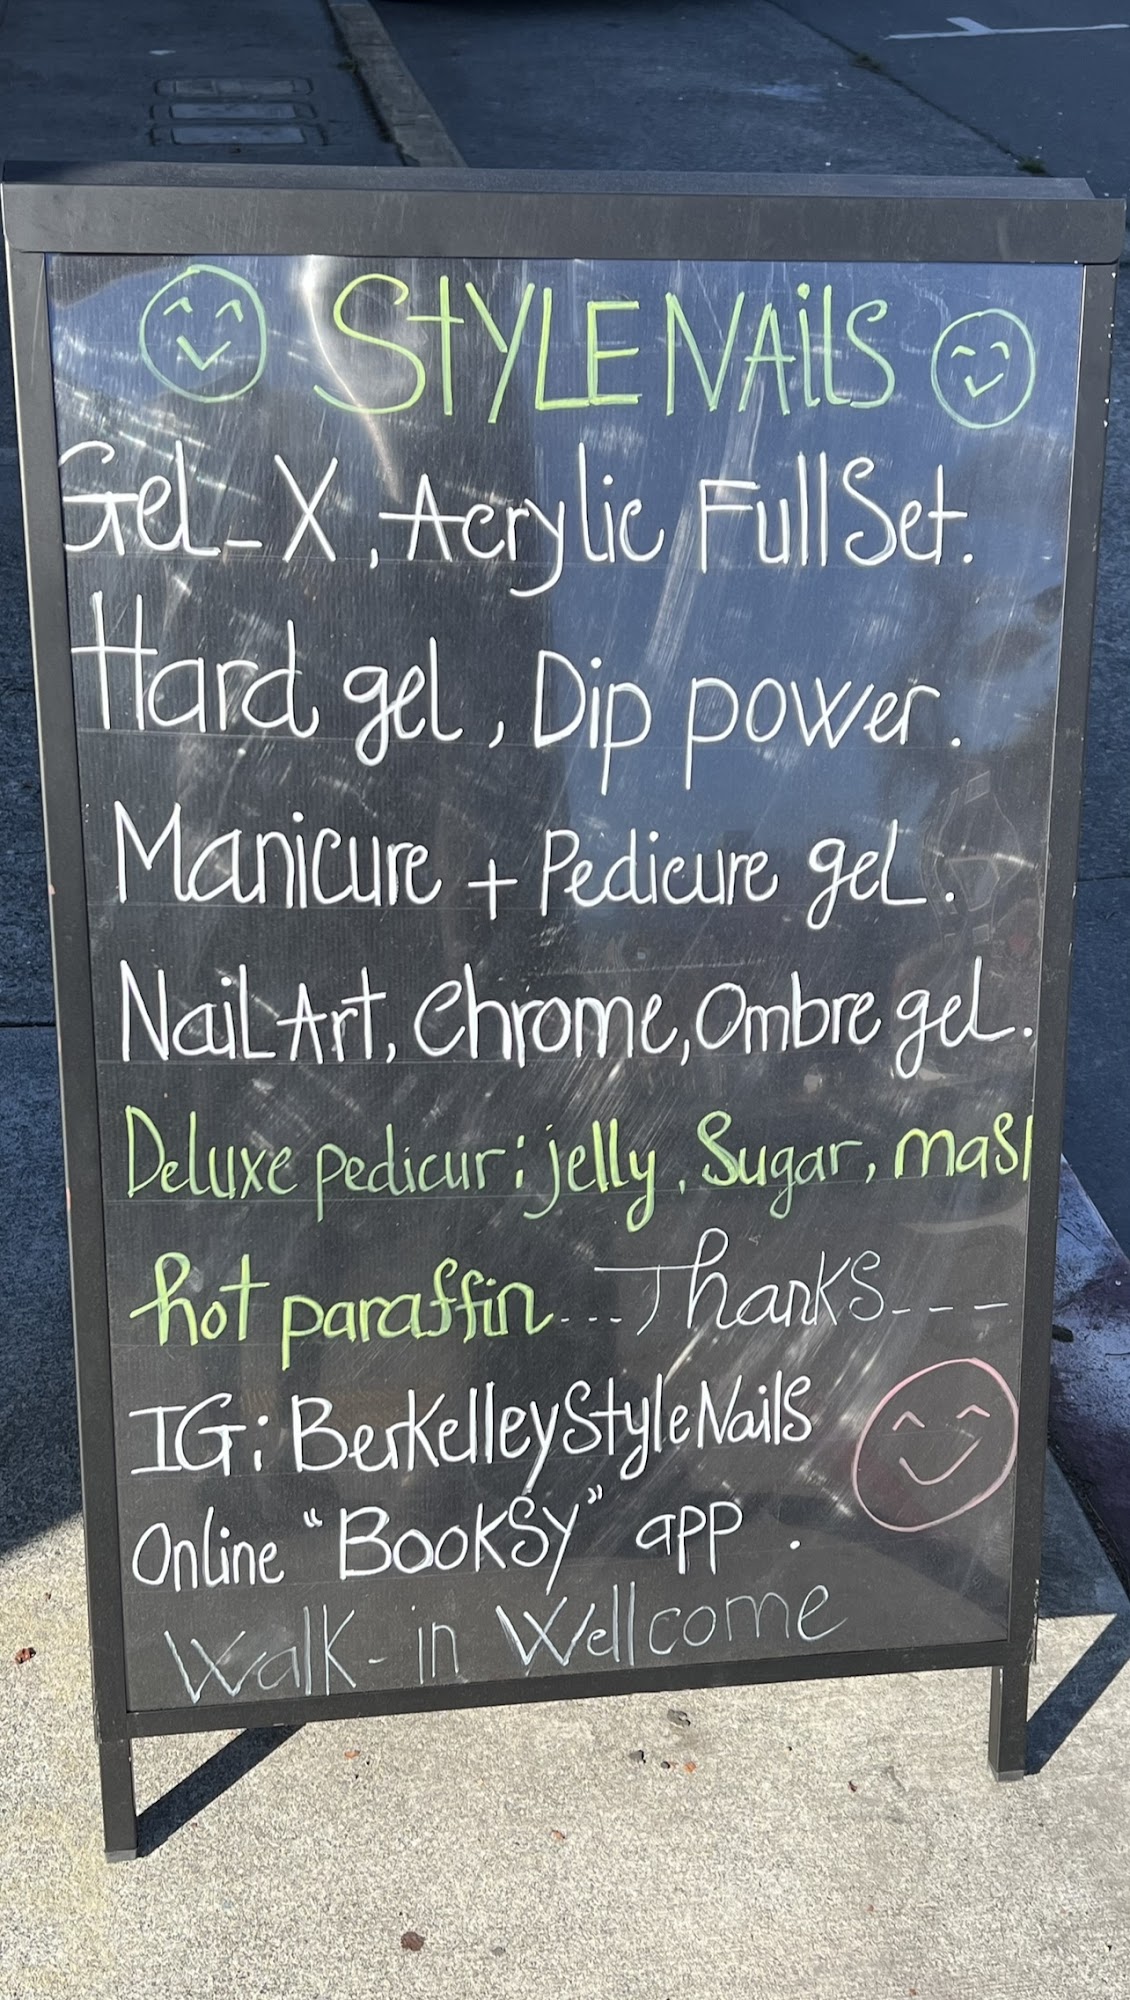 StYLE NAiLS
Gel-X, Acrylic Full Set.
Hard gel, Dip power.
Manicure + Pedicure gel.
Nail Art, Chrome, Ombre gel.
Deluxe pedicur: jelly, Sugar, mask
hot paraffin... Thanks---
IG: BerkelleyStyleNails
Online "BookSy" app.
Walk-in Wellcome